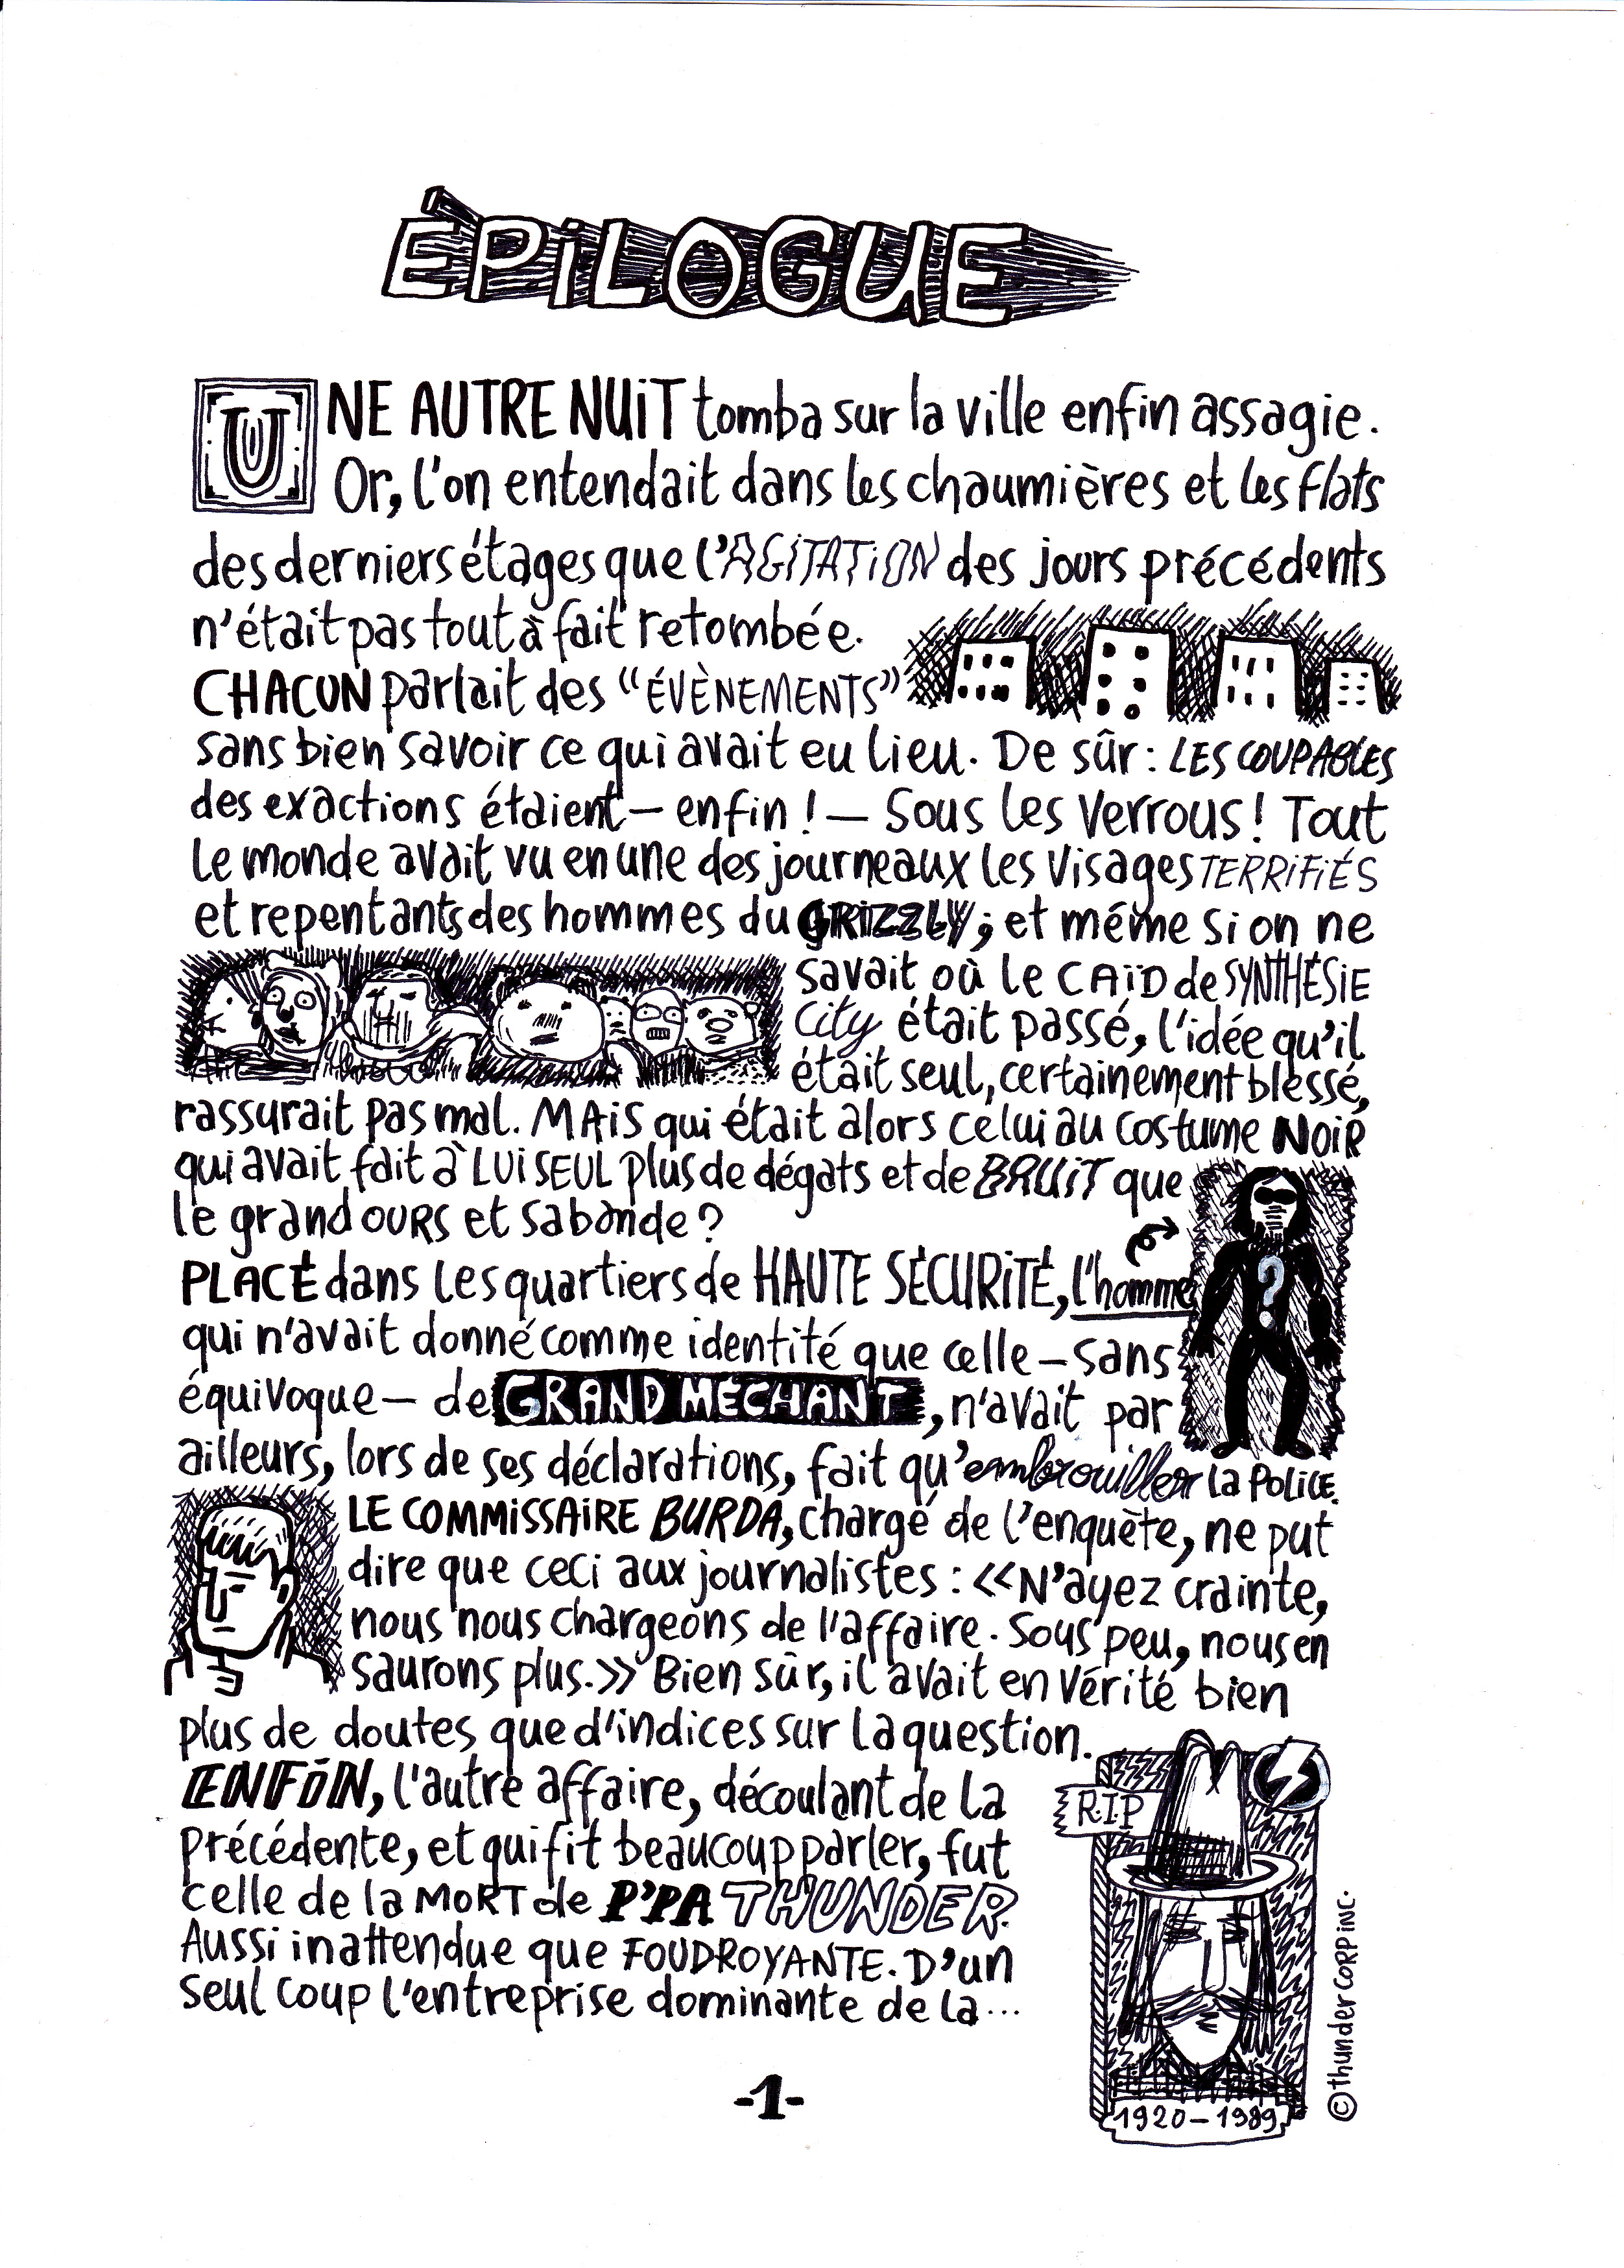 ÉPiLOGUE
UNE AUTRE NUiT tomba sur la ville enfin assagie.
Or, l'on entendait dans les chaumières et les flats
des derniers étages que l'AGiTATiON des jours précédents
n'était pas tout à fait retombée.
CHACUN parlait des “ÉVÈNEMENTS”
sans bien savoir ce qui avait eu lieu. De sûr : LES COUPABLES
des exactions étaient – enfin ! – Sous les Verrous ! Tout
le monde avait vu en une des journeaux les visages TERRiFiÉS
et repentants des hommes du GRiZZLY ; et même si on ne
savait où le CAÏD de SYNTHÉSiE
City était passé, l'idée qu'il
était seul, certainement blessé,
rassurait pas mal. MAiS qui était alors celui au costume NOiR
qui avait fait à LUi SEUL plus de dégats et de BRUiT que
le grand OURS et sa bande ?
PLACÉ dans les quartiers de HAUTE SÉCURiTÉ, l'homme
qui n'avait donné comme identité que celle – sans
équivoque – de GRAND MÉCHANT, n'avait par
ailleurs, lors de ses déclarations, fait qu'embrouiller la POLiCE.
LE COMMiSSAiRE BURDA, chargé de l'enquète, ne put
dire que ceci aux journalistes : «N'ayez crainte,
nous nous chargeons de l'affaire. Sous peu, nous en
saurons plus.» Bien sûr, il avait en vérité bien
plus de doutes que d'indices sur la question.
ENFiN, l'autre affaire, découlant de la
précédente, et qui fit beaucoup parler, fut
celle de la MORT de P'PA THUNDER.
Aussi inattendue que FOUDROYANTE. D'un
seul coup l'entreprise dominante de la...
?
R.I.P
1920 – 1989
© thunder CORP iNC.
-1-